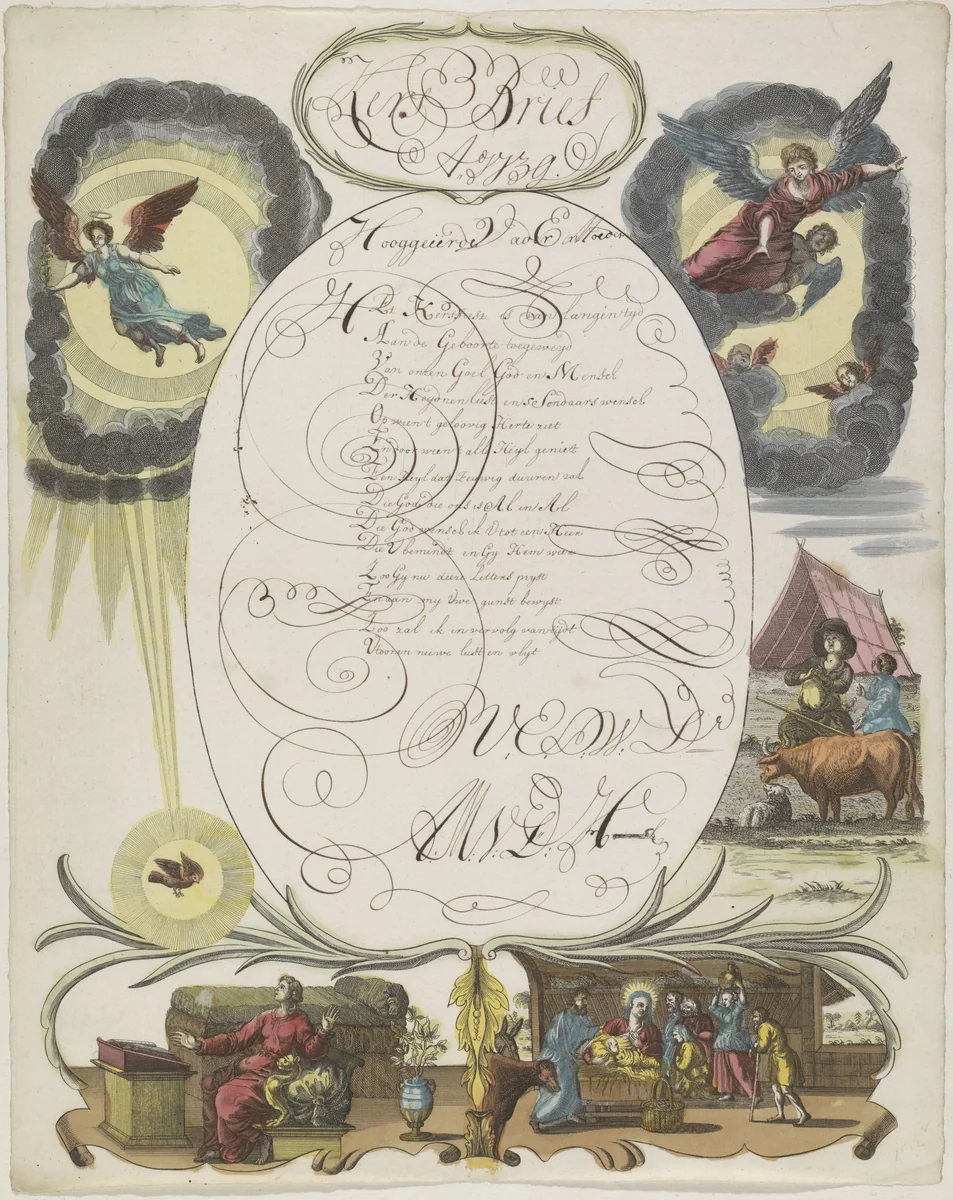 Kers Brief
Ao 1739.
Hooggeëerde Vader en Moeder
Het Kersfeest is van langin tyd
Aan de Geboorte toegewyd
Van onzen Goël God en Mensch
Der Heydenen lust en s Sondaars wensch
Op wien t geloovig Herte ziet
En door wien t alle Heyl geniet
Een Heyl dat Eeuwig duuren zal
Die God die ons is Al in Al
Die God wensch ik U tot een Heer
Die U bemindt en Gy Hem weer
Zoo Gy nu deeze Letters pryst
En aan my Uwe gunst bewyst
Zoo zal ik in vervolg van tydt
U toonen nieuwe lust en vlyt
U.E.D.W. Dr
M.V.D.H